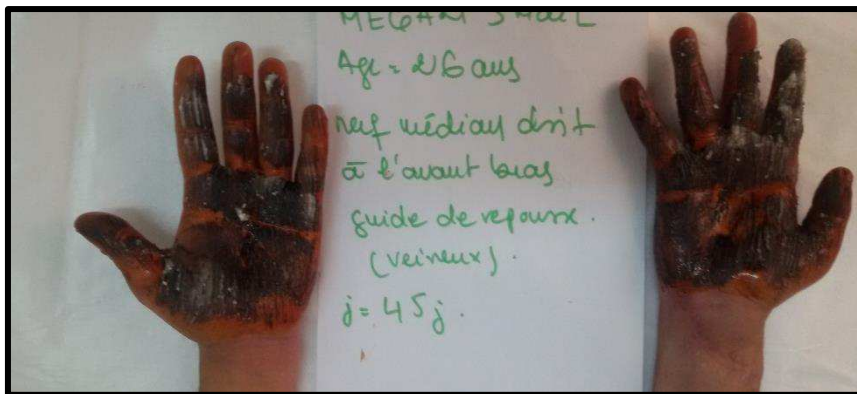 MEGARI SMAIL
Age = 26 ans
nerf médian droit
à l'avant bras
guide de repousse.
(veineux).
j = 45 j.